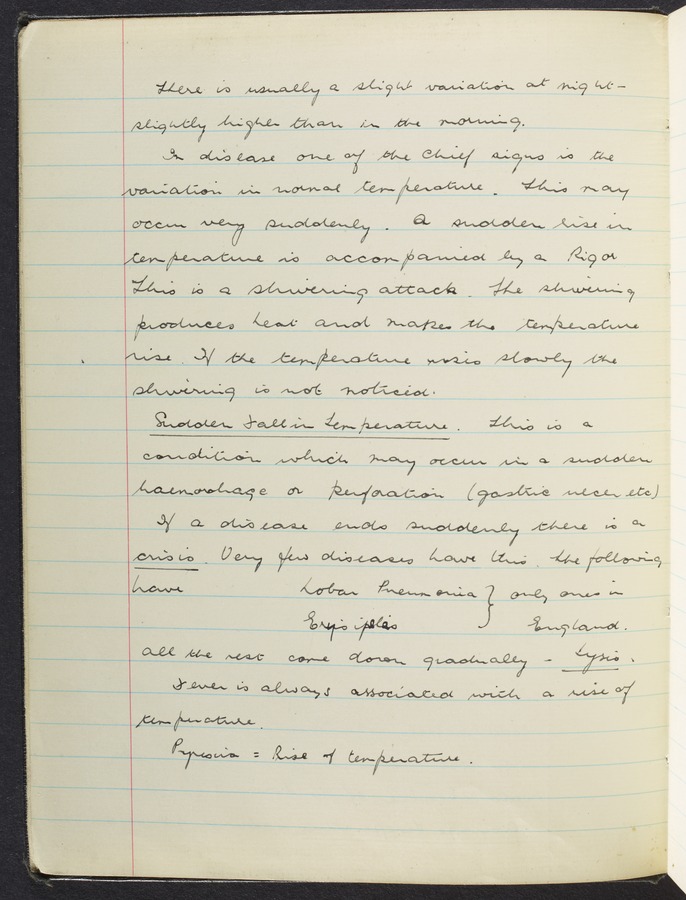 There is usually a slight variation at night -
slightly higher than in the morning.
In disease one of the Chief signs is the
variation in normal temperature. This may
occur very suddenly. A sudden rise in
temperature is accompanied by a Rigor
This is a shivering attack. The shivering
produces heat and makes the temperature
rise. If the temperature slowly the
shivering is not noticed.
Sudden Fall in Temperature. This is a
condition which may occur in a sudden
haemorrhage or perforation (gastric ulcer etc)
If a disease ends suddenly there is a
crisis. Very few diseases have this. The following
have Lobar Pneumonia } only ones in
Erysipelas } England.
all the rest come down gradually - Lysis.
Fever is always associated with a rise of
temperature.
= Rise of temperature.